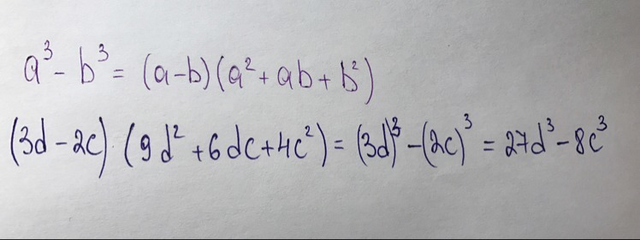 a³ - b³ = (a-b)(a² + ab + b²)
(3d - 2c) · (9d² + 6dc + 4c²) = (3d)³ - (2c)³ = 27d³ - 8c³